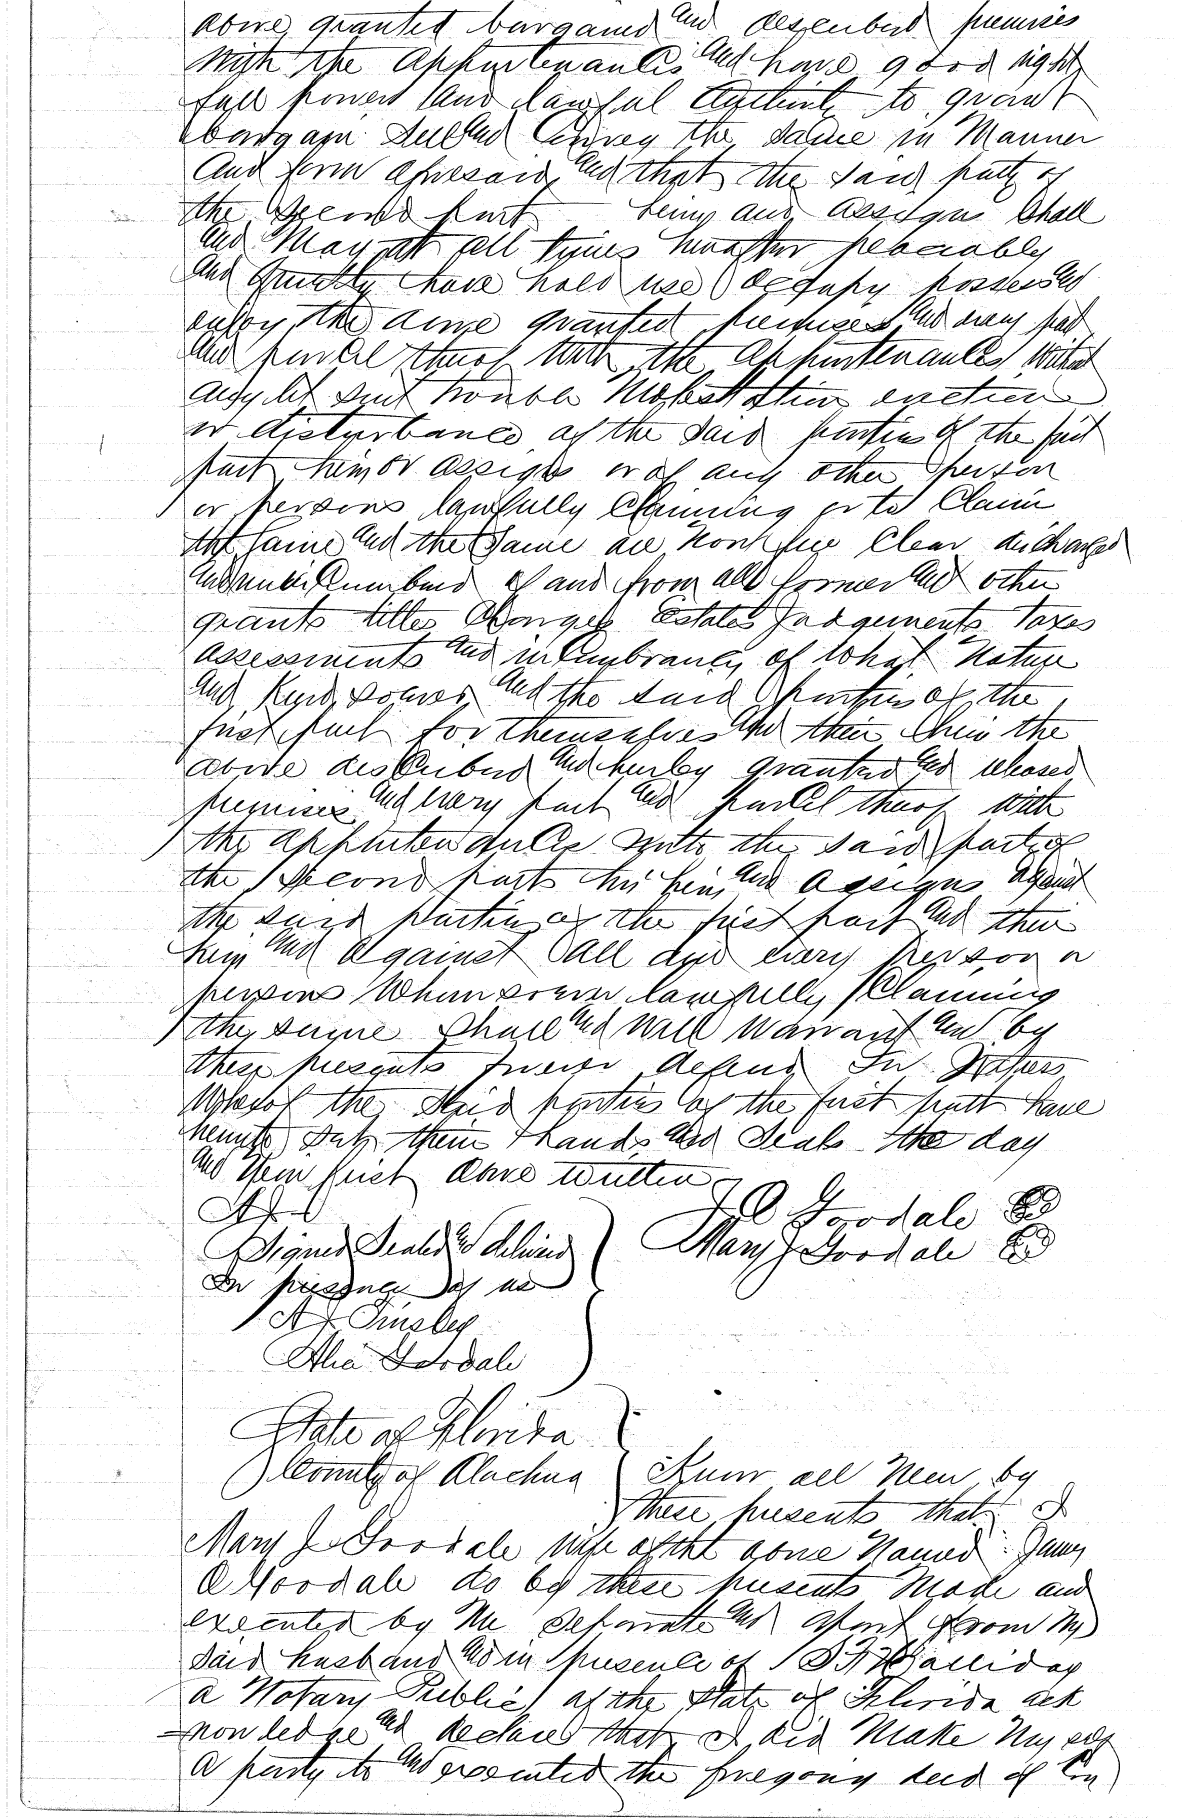 above granted bargained and described premises
With the Appurtenances and have good right
full power and lawful Authority to grant
bargain Sell and Convey the Same in Manner
And form aforesaid and that the said party of
the Second part heirs and assigns Shall
and May at all times hereafter peaceably
and Quietly have hold use occupy possess and
enjoy the above granted premises and every part
and parcel thereof with the appurtenances Without
any let suit trouble Molestation eviction
or disturbance of the said parties of the first
part heirs or assigns or of any other person
or persons lawfully Claiming or to Claim
the Same and the Same are now free Clear discharged
and unincumbered of and from all former and other
grants titles Charges Estates Judgements Taxes
assessments and incumbrances of What Nature
and Kind soever and the said parties of the
first part for themselves and their heirs the
above described and hereby granted and released
premises and every part and parcel thereof with
the appurtenances unto the said party of
the Second part his heirs and assigns against
the said parties of the first part and their
heirs and Against All and every person or
persons Whomsoever lawfully Claiming
the same Shall and will Warrant and by
these presents forever defend In Witness
Whereof the Said parties of the first part have
hereunto Set their hands and Seals the day
and Year first above written
Signed Sealed & delivered J O Goodale
In presence of us Mary J Goodale
A J Tinsley
Goodale
State of Florida
County of Alachua Know all Men by
these presents that I
Mary J Goodale wife of the above Named James
O Goodale do by these presents Made and
executed by Me Separate and apart from My
said husband and in presence of Halliday
a Notary Public of the State of Florida ack
nowledge and declare that I did Make Myself
a party to and executed the foregoing deed of Con